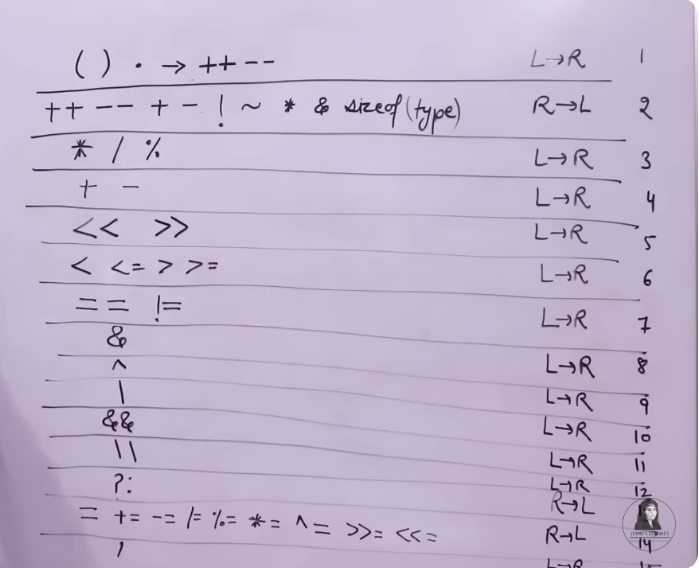 ( ) . → ++ -- L→R 1
++ -- + - ! ~ * & sizeof (type) R→L 2
* / % L→R 3
+ - L→R 4
<< >> L→R 5
< <= > >= L→R 6
== != L→R 7
& L→R 8
^ L→R 9
| L→R 10
&& L→R 11
\\ L→R 12
?: R→L
= += -= /= %= *= ^= >>= <<= R→L 14
, L→R